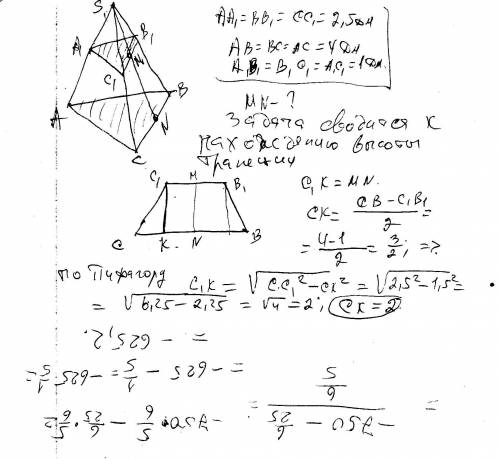 S₁
A₁ B₁
M
C₁
A B
N
C
AA₁ = BB₁ = CC₁ = 2,5дм
AB = BC = AC = 4дм
A₁B₁ = B₁C₁ = A₁C₁ = 1дм.
MN - ?
Задача сводится к
нахождению высоты
трапеции
C₁ M B₁
C K N B
C₁K = MN.
CK = (CB - C₁B₁)/2 =
= (4-1)/2 = 3/2; =>?
по Пифагору
C₁K = √(CC₁² - CK²) = √(2,5² - 1,5²) =
= √(6,25 - 2,25) = √4 = 2; CK = 2